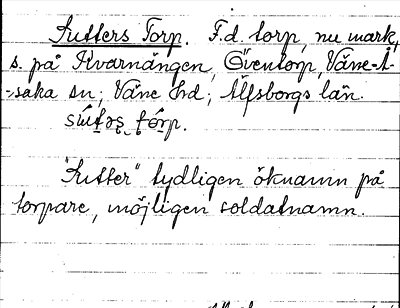 Sutters Torp. F.d. torp, nu mark,
s. på Kvarnängen, Öventorp, Väne-Å-
-saka sn; Väne hd; Älfsborgs län.
sút̯əs̯ t̯ó̱rp.
"Sutter" tydligen öknamn på
torpare, möjligen soldatnamn.